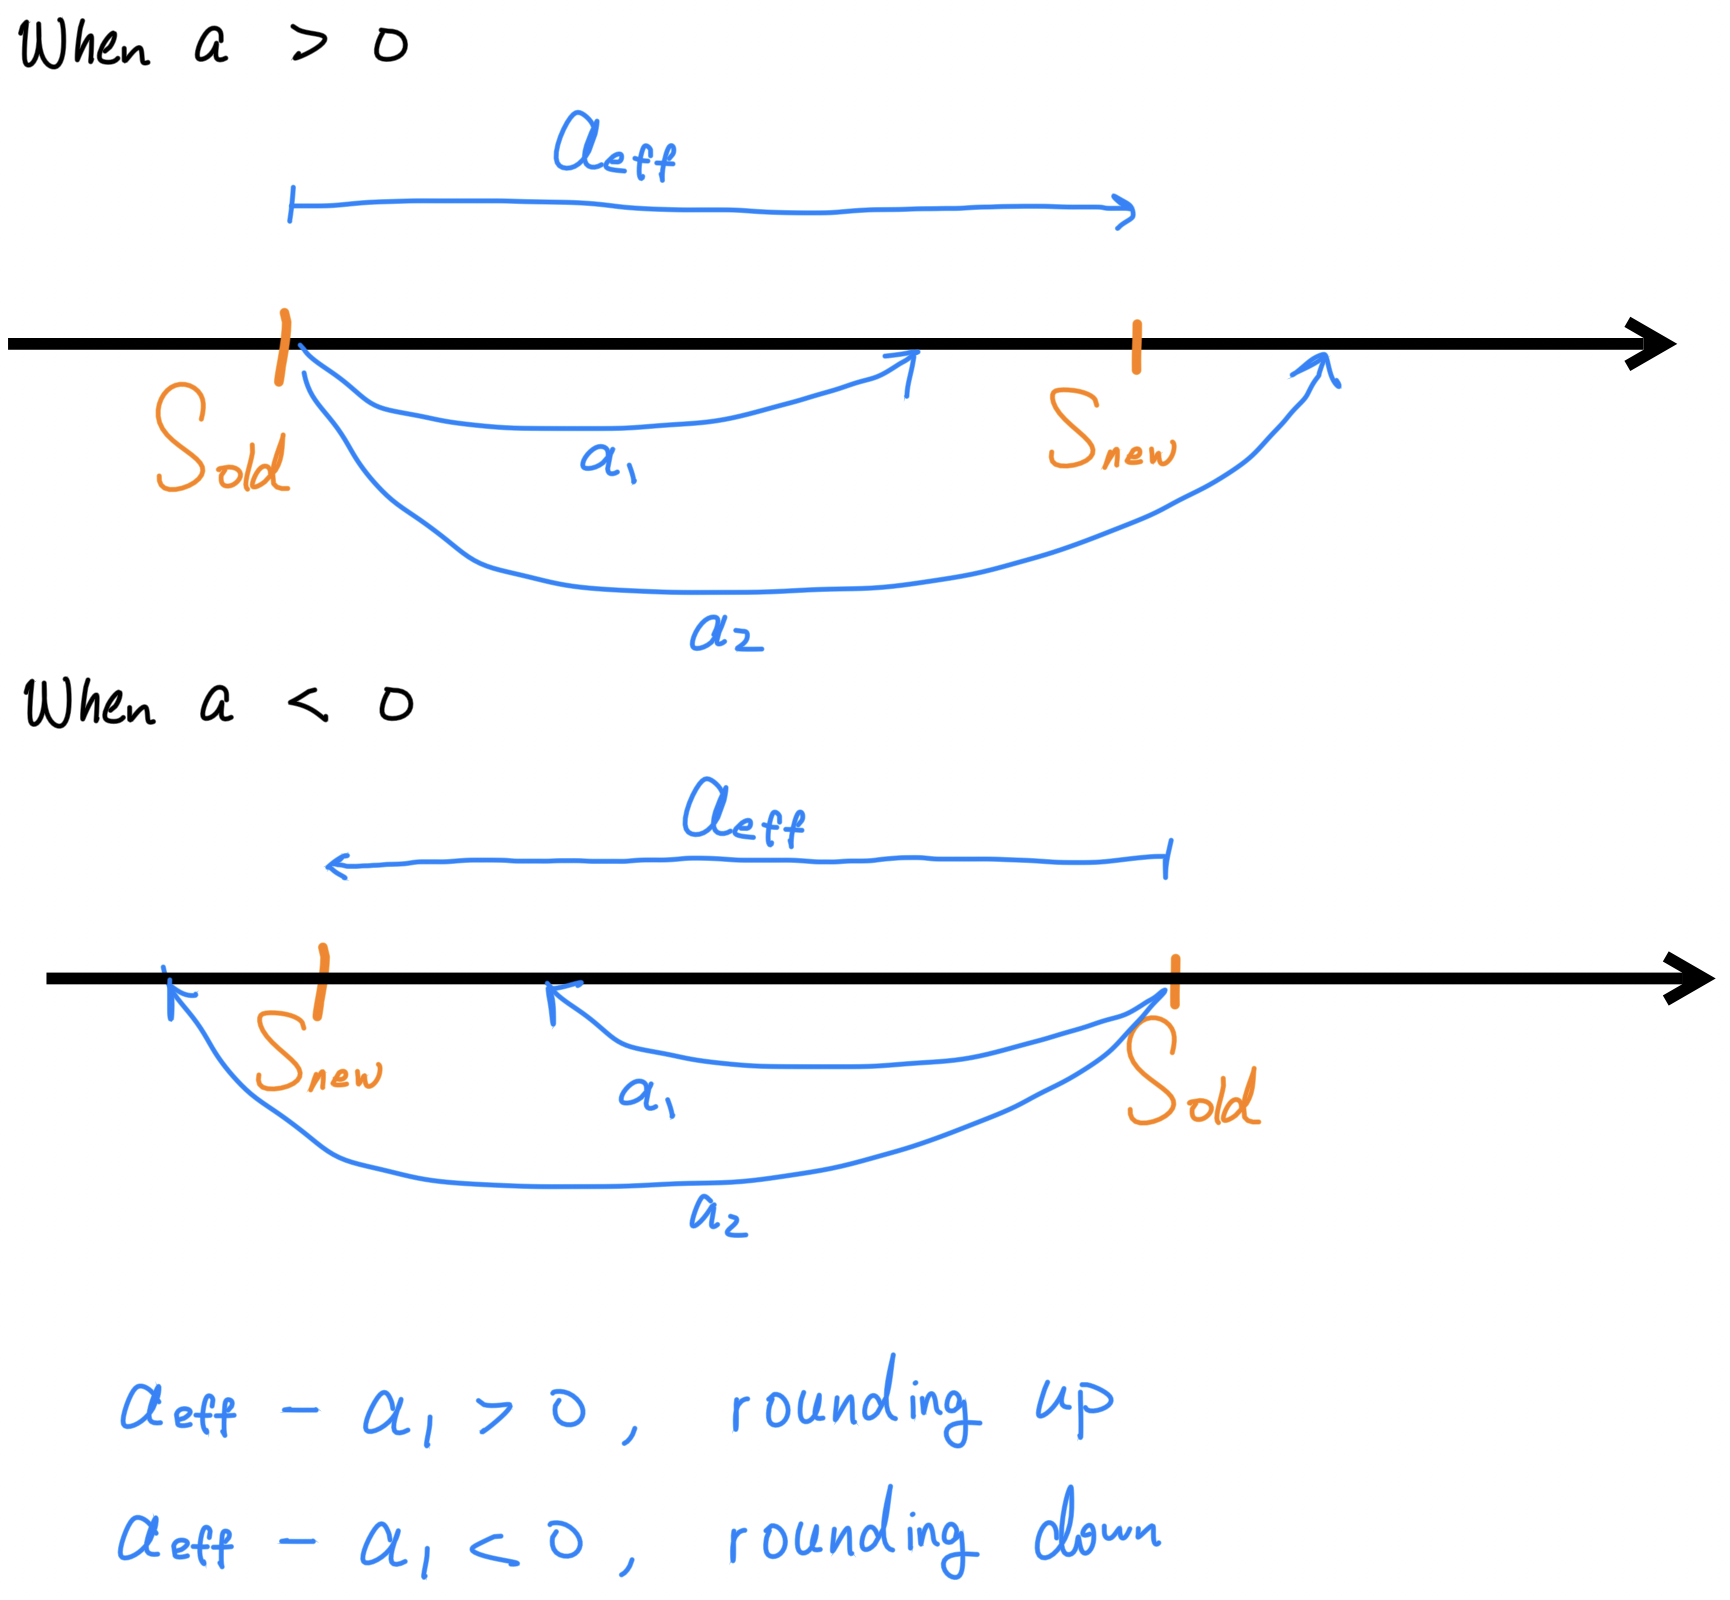 When a > 0
a_eff
S_old
S_new
a_1
a_2
When a < 0
a_eff
S_new
S_old
a_1
a_2
a_eff - a_1 > 0, rounding up
a_eff - a_1 < 0, rounding down